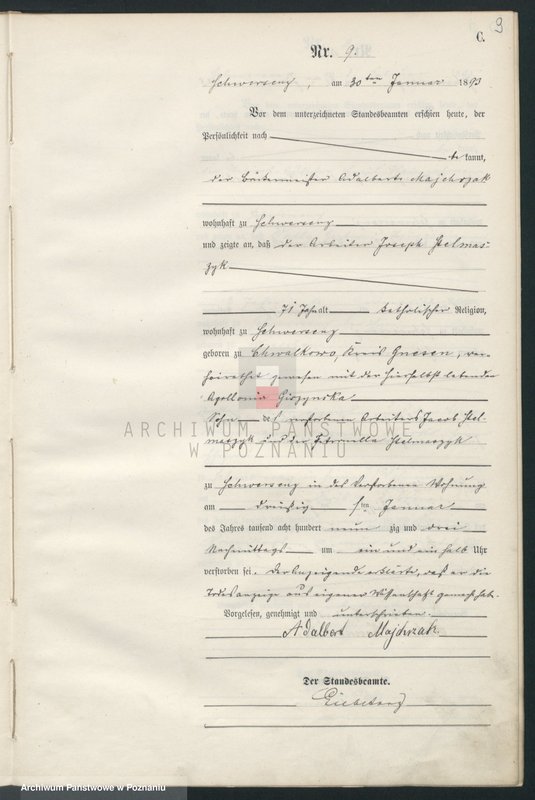 9
C.
Nr. 9.
Schwersenz, am 30 ten Januar 1893
Vor dem unterzeichneten Standesbeamten erschien heute, der
Persönlichkeit nach
be kannt,
der Bäckermeister Adalbert Majchrzak
wohnhaft zu Schwersenz
und zeigte an, daß der Arbeiter Joseph Stelmas-
zyk
71 Jahr alt katholischer Religion,
wohnhaft zu Schwersenz
geboren zu Chwalkowo, Kreis Gnesen, ver-
heirathet gewesen mit der hierselbst lebenden
Apollonia
Sohn des verstorbenen Arbeiters Jacob Stel-
maszyk und der Petronella Stelmaszyk
ARCHIWUM PAŃSTWOWE
W POZNANIU
zu Schwersenz in des Verstorbenen Wohnung
am dreißig sten Januar
des Jahres tausend acht hundert neun zig und drei
Nachmittags um ein und ein halb Uhr
verstorben sei. Der Anzeigende erklärte, daß er die
Todesanzeige aus eigener Wissenschaft gemacht habe.
Vorgelesen, genehmigt und unterschrieben.
Adalbert Majchrzak
Der Standesbeamte.
Archiwum Panstwowe w Poznaniu